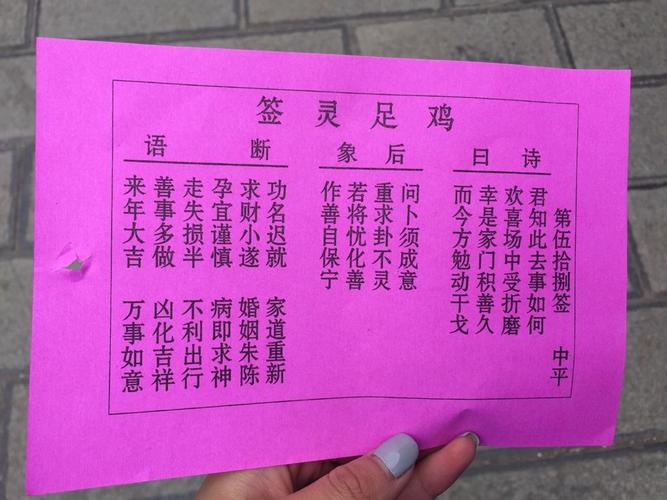 鸡足灵签
诗曰
第伍拾捌签 中平
君知此去事如何
欢喜场中受折磨
幸是家门积善久
而今方勉动干戈
后象
问卜须成意
重求卦不灵
若将忧化善
作善自保宁
断语
功名迟就 家道重新
求财小遂 婚姻朱陈
孕宜谨慎 病即求神
走失损半 不利出行
善事多做 凶化吉祥
来年大吉 万事如意